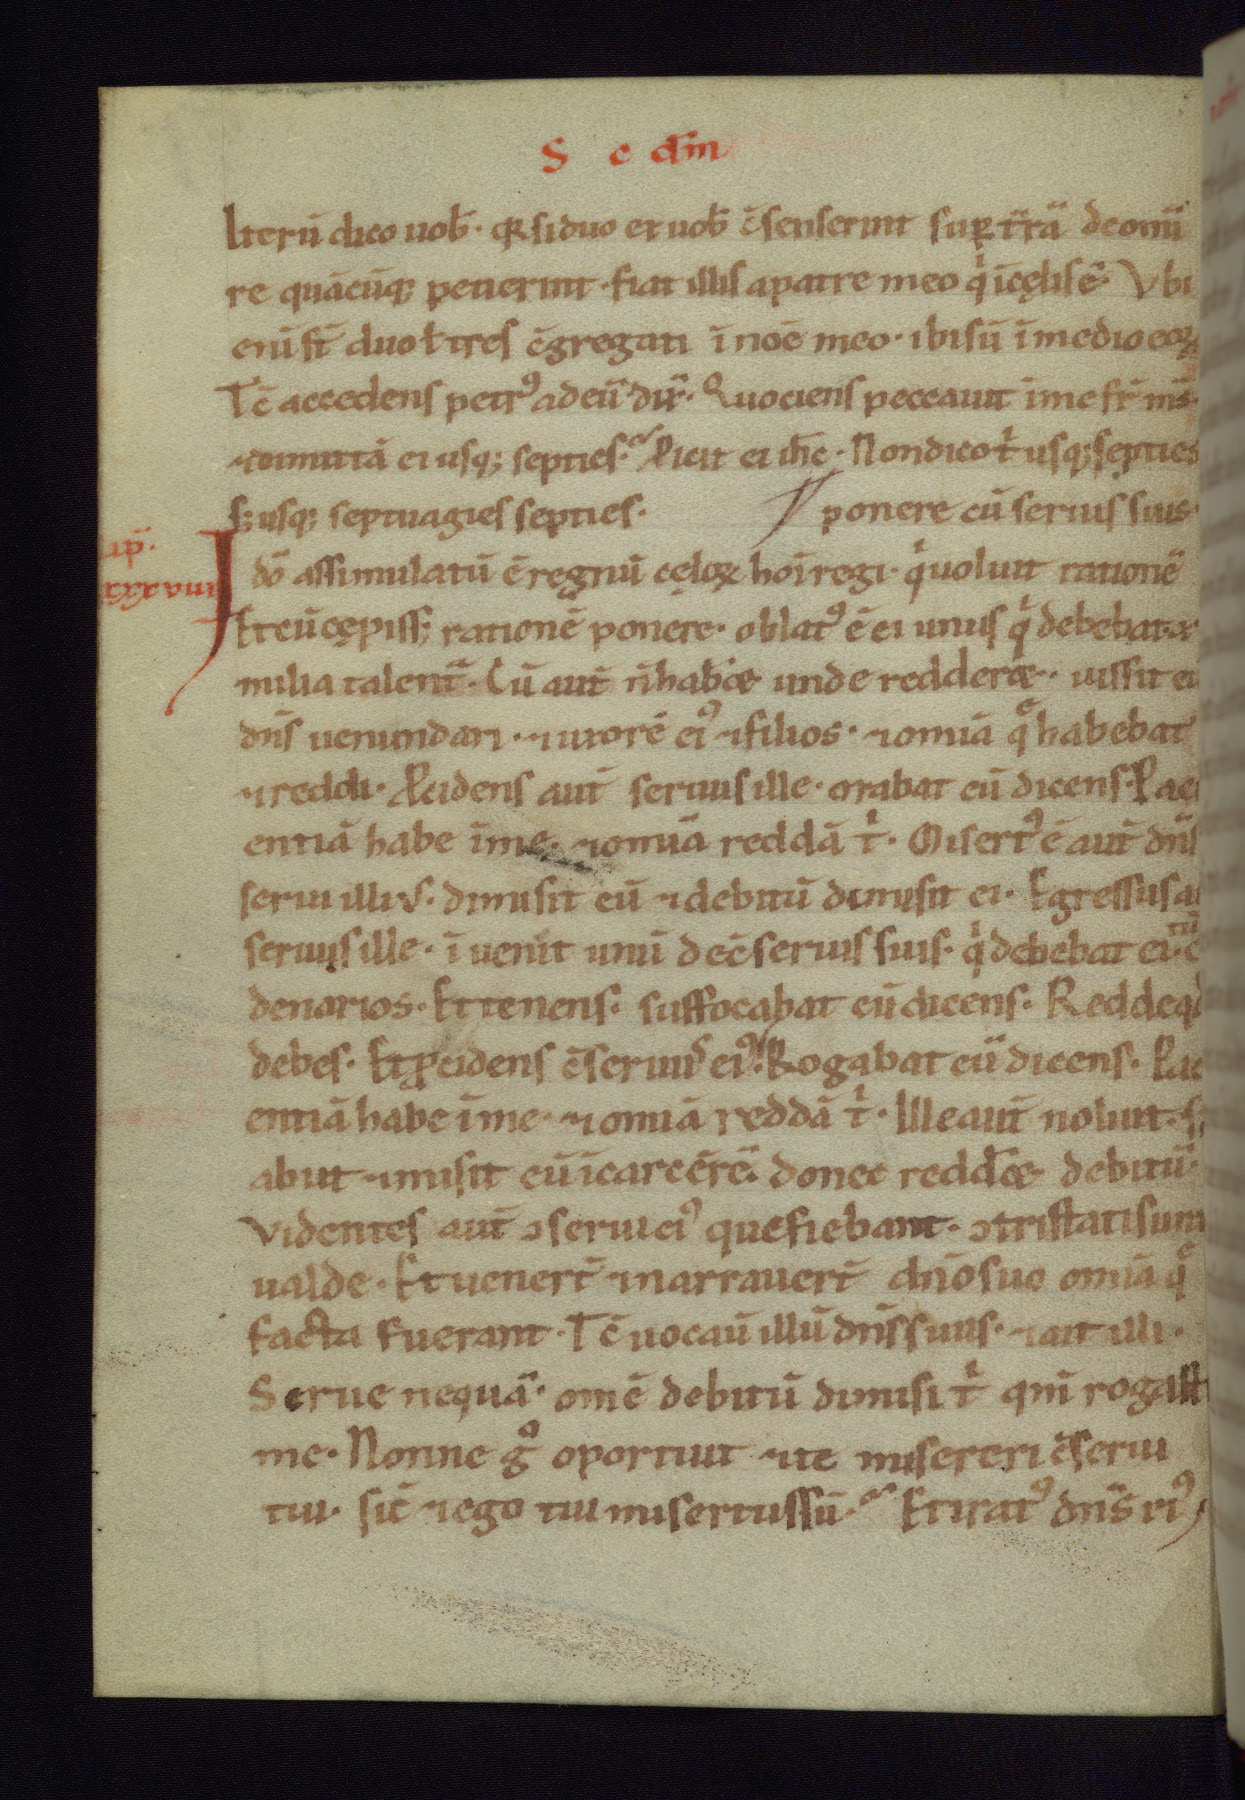 S c dm̄
Iterū dico uob̄· qꝛ si duo ex uob̄ c̄senserint sup t̄rā de omī
re quācūq; petierint· fiat illis a patre meo qⁱ ī cęlis ē· Vbi
enī st̄ duo ł tres c̄gregati ī noē meo· ibi sū ī medio eoꝝ
Tc̄ accedens petrꝰ ad eū dix̄· Quociens peccauit ī me fr̄ m̄s·
⁊ dimittā ei usq; septies· Dicit ei ih̄c· Non dico tⁱ usq; septies
s; usq; septuagies septies· ponere cū seruis suis·
ap̄·
xxxviii
Ideō assimulatū ē regnū cęloꝝ hoī regi· qⁱ uoluit rationē
Et cū cępiss; rationē ponere· oblatꝰ ē ei unus qⁱ debebat x
milia talentā· Cū aut̄ n̄ haberꝫ unde redderꝫ· iussit ei
dn̄s uenundari· ⁊ uxorē eiꝰ ⁊ filios· ⁊ omīa q̄ habebat
⁊ reddi· Pcidens aut̄ seruus ille· orabat eū dicens· Paci
entiā habe ī me· ⁊ omīa reddā tⁱ· Misertꝰ ē aut̄ dn̄s
serui illius· dimisit eū ⁊ debitū dimisit ei· Egressus a
seruus ille· īuenit unū de c̄seruis suis· qⁱ debebat ei· c̄tū
denarios· Et tenens· suffocabat eū dicens· Redde qd
debes· Et pcidens c̄seruus eiꝰ· Rogabat eū dicens· Pac
entiā habe ī me· ⁊ omīa reddā tⁱ· Ille aut̄ noluit· s;
abiit ⁊ misit eū ī carcerē· donec redderꝫ debitū·
Videntes aut̄ ꝯserui eiꝰ que fiebant· ꝯtristati sunt
ualde· Et uenert̄ ⁊ narrauert̄ dn̄o suo omīa q̄
facta fuerant· Tc̄ uocau̅ illū dn̄s suus· ⁊ ait illi·
Serue nequā· om̄e debitū dimisi tⁱ qm̄ rogasti
me· Nonne gͦ oportuit ⁊ te misereri c̄serui
tui· sic̄ ⁊ ego tui misertus sū· Et iratꝰ dn̄s eiꝰ